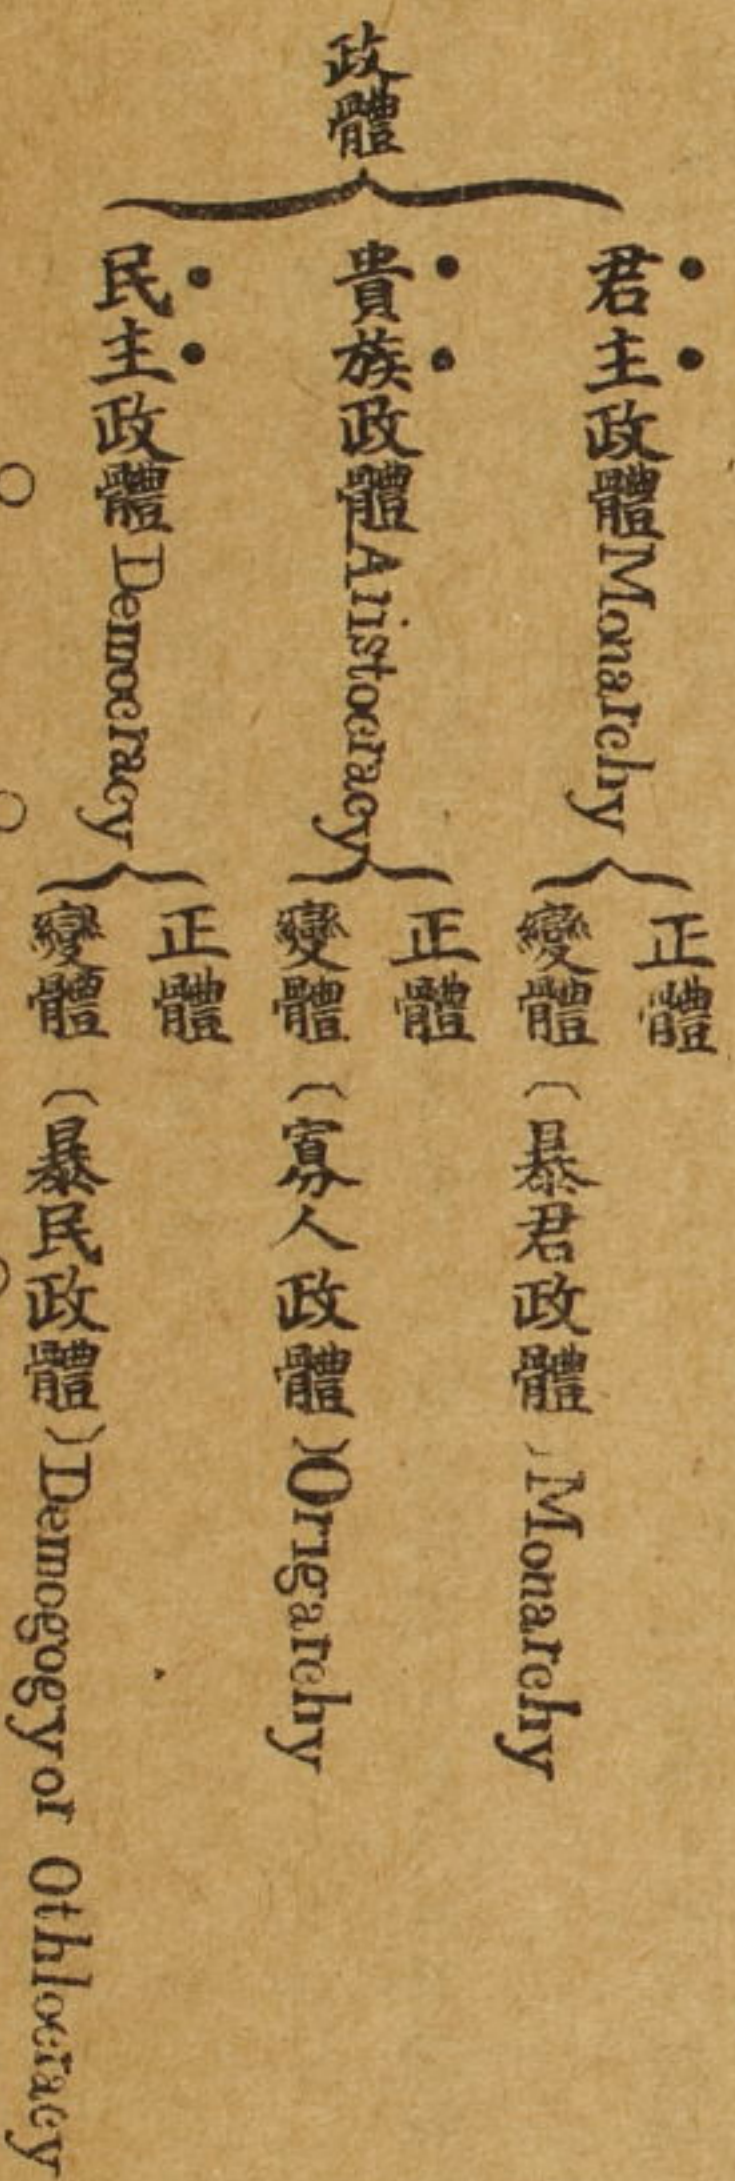 政體
君主政體Monarchy
正體
變體〔暴君政體〕Monarchy
貴族政體Aristocracy
正體
變體〔寡人政體〕Origarchy
民主政體Democracy
正體
變體〔暴民政體〕Demogogy or Othlocracy